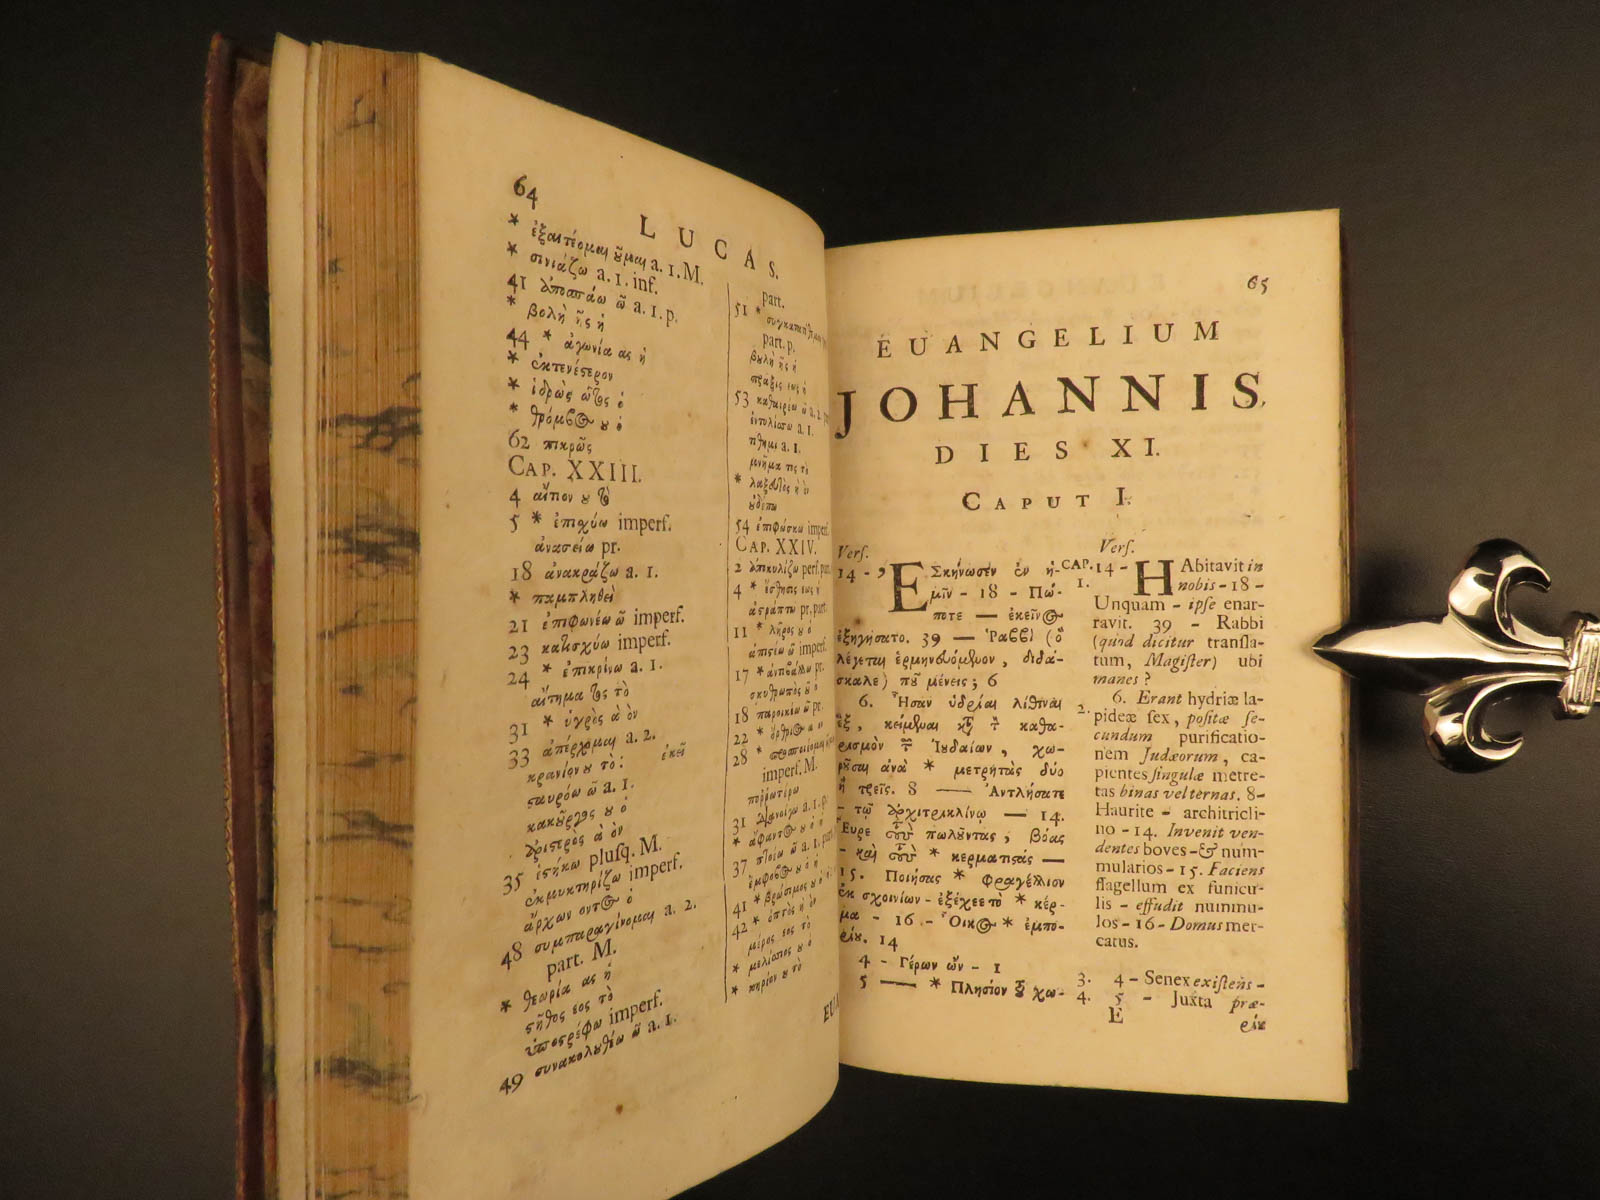 64
LUCAS.
* ἐξαιτέομαι ὕμαι a. 1. M.
* σινιάζω a. 1. inf.
41 ἀποσπάω ῶ a. 1. p.
* βολὴ ῆς ἡ
44 * ἀγωνία ας ἡ
* ἐκτενέστερον
* ἱδρὼς ῶτος ὁ
* θρόμβος ου ὁ
62 πικρῶς
CAP. XXIII.
4 αἴτιον ου τὸ
5 * ἐπιχύω imperf.
ἀνασείω pr.
18 ἀνακράζω a. 1.
* παμπληθεὶ
21 ἐπιφωνέω ῶ imperf.
23 κατισχύω imperf.
24 * ἐπικρίνω a. 1.
αἴτημα τος τὸ
31 * ὑγρὸς ὰ ὸν
33 ἀπέρχομαι a. 2.
κρανίον ου τὸ: ἐκεῖ
σαυρόω ῶ a. 1.
κακοῦργος ου ὁ
ἀριστερὸς ὰ ὸν
35 ἑστήκω plusq. M.
ἐκμυκτηρίζω imperf.
ἄρχων οντος ὁ
48 συμπαραγίνομαι a. 2.
part. M.
* θεωρία ας ἡ
στῆθος εος τὸ
ὑποστρέφω imperf.
49 συνακολουθέω ῶ a. 1.
part.
51 *
part. p.
βουλὴ ῆς ἡ
πρᾶξις εως ἡ
53 καθαιρέω ῶ a. 2.
ἐντυλίσσω a. 1.
τίθημι a. 1.
μνῆμα τος τὸ
* λαξευτὸς ὴ ὸν
οὐδέπω
54 ἐπιφώσκω imperf.
CAP. XXIV.
2 ἀποκυλίζω perf. part.
4 * ἔσθησις εως ἡ
ἀστράπτω pr. part.
11 * λῆρος ου ὁ
ἀπιστέω ῶ imperf.
17 * ἀντιβάλλω pr.
σκυθρωπὸς οῦ ὁ
18 παροικέω ῶ pr.
22 *
28 * προσποιέομαι
imperf. M.
ποῤῥωτέρω
31 διανοίγω a. 1. p.
* ἄφαντος ου ὁ ἡ
37 πτοέω ῶ a. 1. part.
ἔμφοβος ου ὁ ἡ
41 * βρώσιμος ου ὁ ἡ
42 * ὀπτὸς ὴ ὸν
μέρος εος τὸ
* μελίσσιος ου ὁ
* κηρίον ου τὸ
65
EUANGELIUM
JOHANNIS.
DIES XI.
CAPUT I.
Vers.
14 - ’ΕΣκήνωσεν ἐν ἡ-
μῖν - 18 - Πώ-
ποτε — ἐκεῖνος
ἐξηγήσατο. 39 — Ῥαββὶ (ὃ
λέγεται ἑρμηνευόμενον, διδά-
σκαλε) ποῦ μένεις; 6
6. Ἦσαν ὑδρίαι λίθιναι
ἓξ, κείμεναι κατὰ τὸν καθα-
ρισμὸν τῶν Ἰουδαίων, χω-
ροῦσαι ἀνὰ * μετρητὰς δύο
ἢ τρεῖς. 8 — Ἀντλήσατε
- τῷ ἀρχιτρικλίνῳ — 14.
Εὗρε τοὺς πωλοῦντας, βόας
- καὶ τοὺς * κερματιστὰς —
15. Ποιήσας * φραγέλλιον
ἐκ σχοινίων - ἐξέχεε τὸ * κέρ-
μα - 16 - Οἶκος * ἐμπο-
ρίου. 14
4 - Γέρων ὢν - 1
5 — * Πλησίον τοῦ χω-
CAP.
1.
2.
3.
4.
Vers.
14 - HAbitavit in
nobis - 18 -
Unquam - ipse enar-
ravit. 39 - Rabbi
(quod dicitur transla-
tum, Magister) ubi
manes?
6. Erant hydriæ la-
pideæ sex, positæ se-
cundum purificatio-
nem Judæorum, ca-
pientes singulæ metre-
tas binas vel ternas. 8-
Haurite - architricli-
no - 14. Invenit ven-
dentes boves - & num-
mularios - 15. Faciens
flagellum ex funicu-
lis - effudit nummu-
los - 16 - Domus mer-
catus.
4 - Senex existens -
5 - Juxta præ-
E
ρίου